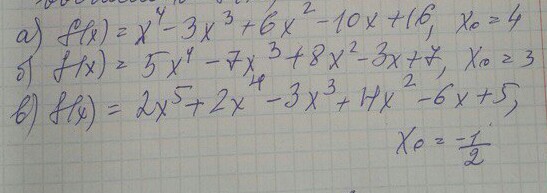 а) f(x) = x⁴ - 3x³ + 6x² - 10x + 16, x₀ = 4
б) f(x) = 5x⁴ - 7x³ + 8x² - 3x + 7, x₀ = 3
в) f(x) = 2x⁵ + 2x⁴ - 3x³ + 4x² - 6x + 5,
x₀ = -1/2